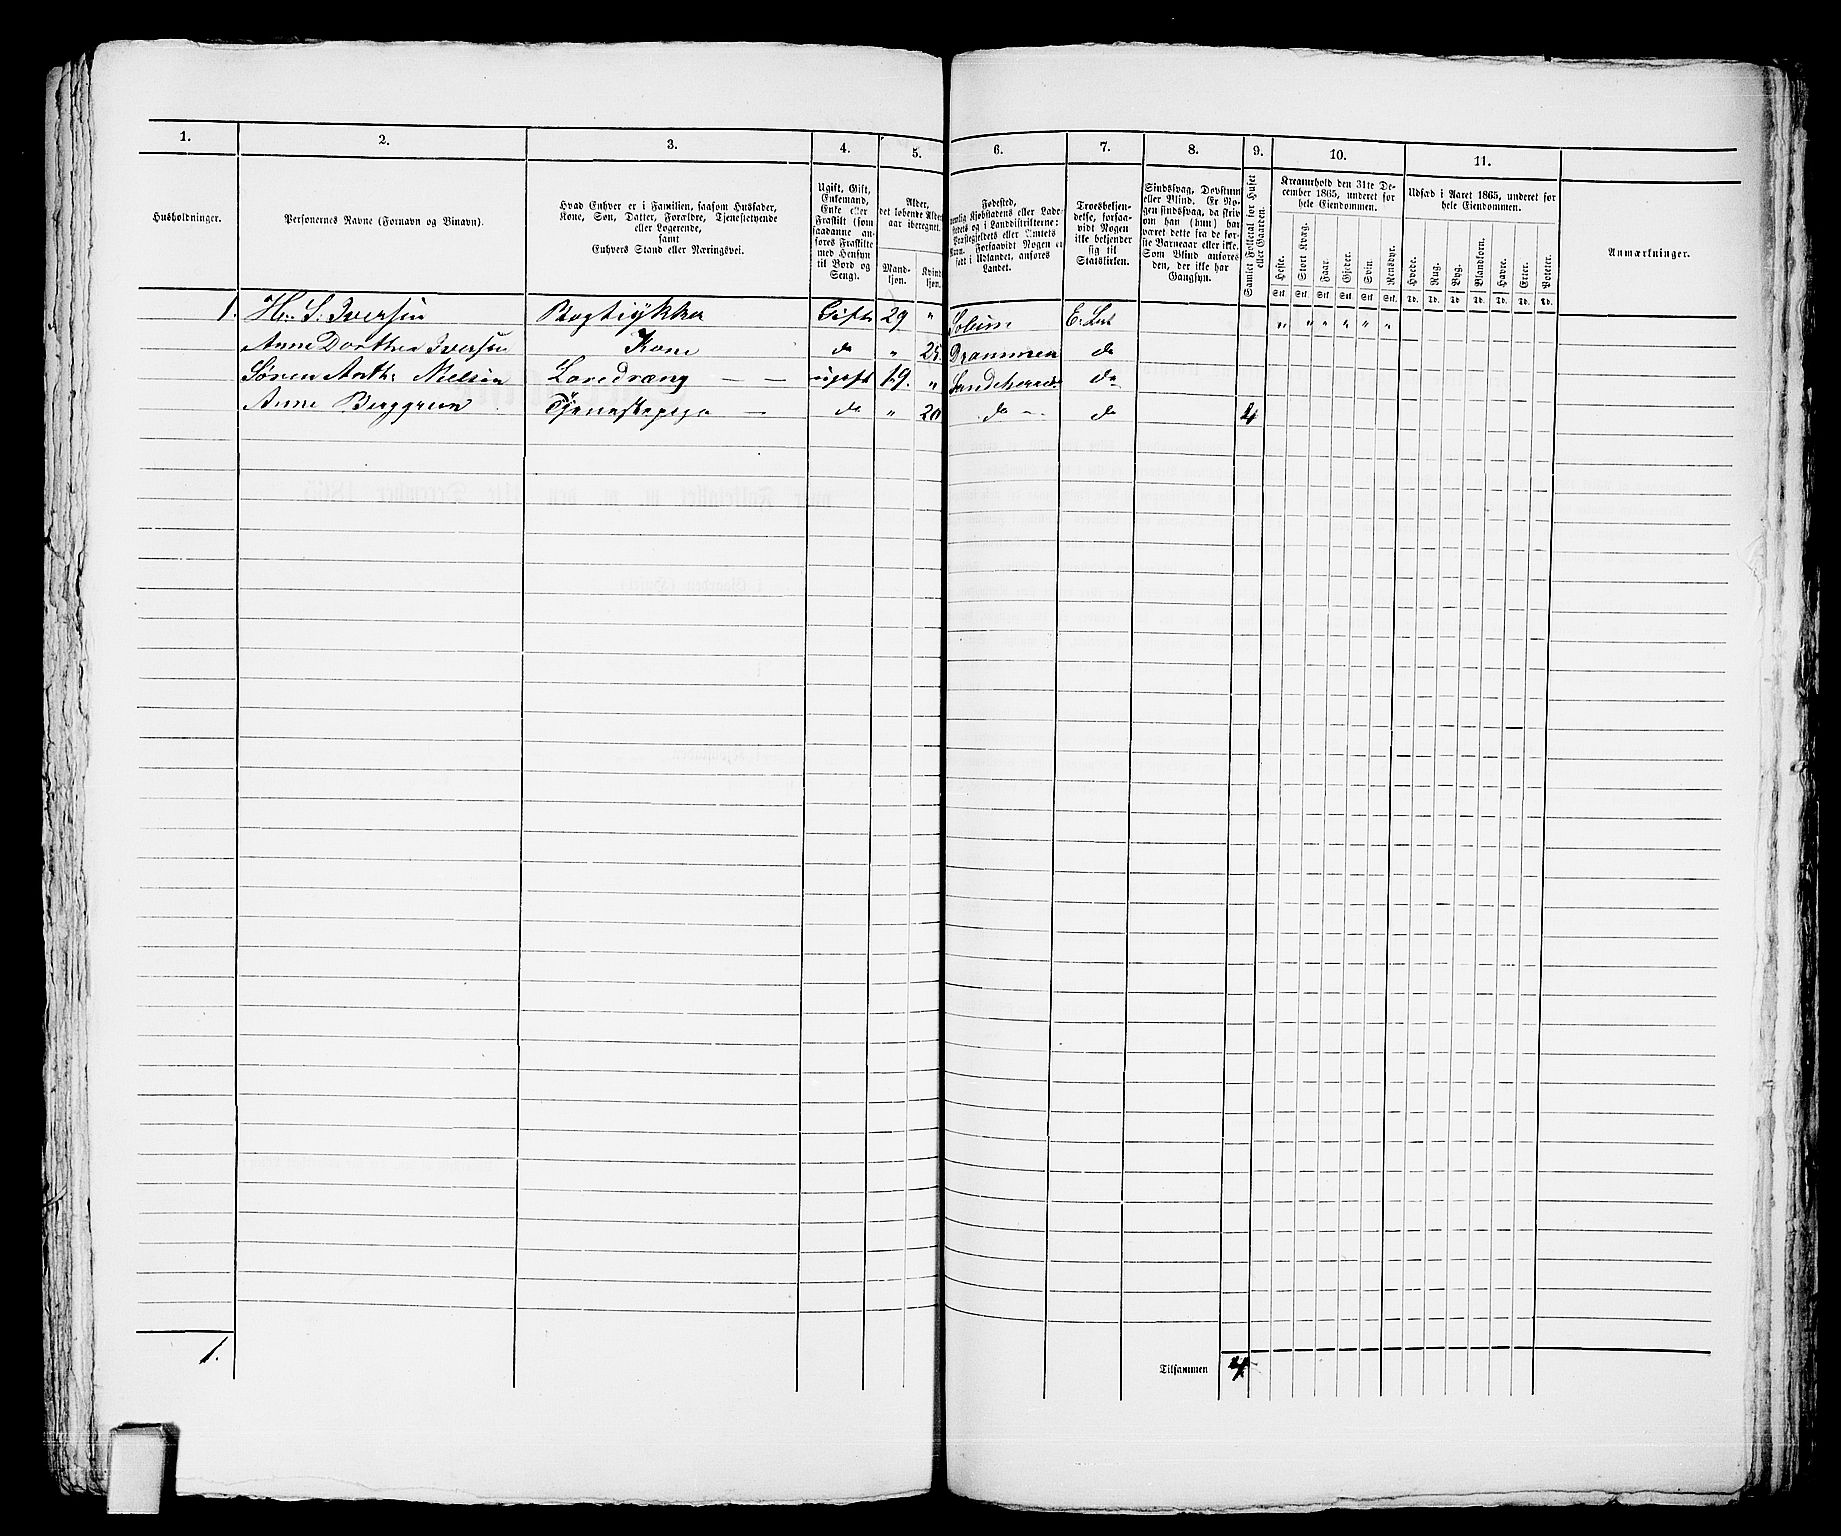 1. 2. 3. 4. 5. 6. 7. 8. 9. 10. 11.
Husholdninger.
Personernes Navne (Fornavn og Binavn).
Hvad Enhver er i Familien, saasom Husfader,
Kone, Søn, Datter, Forældre, Tjenestetyende
eller Logerende,
samt
Enhvers Stand eller Næringsvei.
Ugift, Gift,
Enkemand,
Enke eller
Fraskilt (som
saadanne an-
føres Fraskilte
med Hensyn
til Bord og
Seng).
Alder,
det løbende Alders-
aar iberegnet.
Mand-
kjøn.
Kvind-
kjøn.
Fødested,
nemlig Kjøbstadens eller Lade-
stedets og i Landdistrikterne:
Præstegjeldets eller Amtets
Navn. Forsaavidt Nogen er
født i Udlandet, anføres
Landet.
Troesbekjen-
delse, forsaa-
vidt Nogen
ikke bekjender
sig til
Statskirken.
Sindssvag, Døvstum
eller Blind. Er No-
gen sindssvag, da skriv
om han (hun) har
været dette fra de før-
ste Barneaar eller ikke.
Som Blind anføres
den, der ikke har
Gangsyn.
Samlet Folketal for Huset
eller Gaarden.
Kreaturhold den 31te De-
cember 1865, underet for
hele Eiendommen.
Heste. Stort Kvæg. Faar. Gjeder. Svin. Rensdyr.
Stk. Stk. Stk. Stk. Stk. Stk.
Udsæd i Aaret 1865, underet for
hele Eiendommen.
Hvede. Rug. Byg. Blandkorn. Havre. Erter. Poteter.
Td. Td. Td. Td. Td. Td. Td.
Anmærkninger.
1. H. S. Iversen Bogtrykker Gift 29 " E: Lut " " " " " "
Anne Dorthea Iversen Kone do " 25. Drammen do
Søren Anth: Nielsen Læredreng — — ugift 19. " Sandeherred do
Anne Berggreen Tjenestepige — do " 20 do - do 4
1.
Tilsammen 4